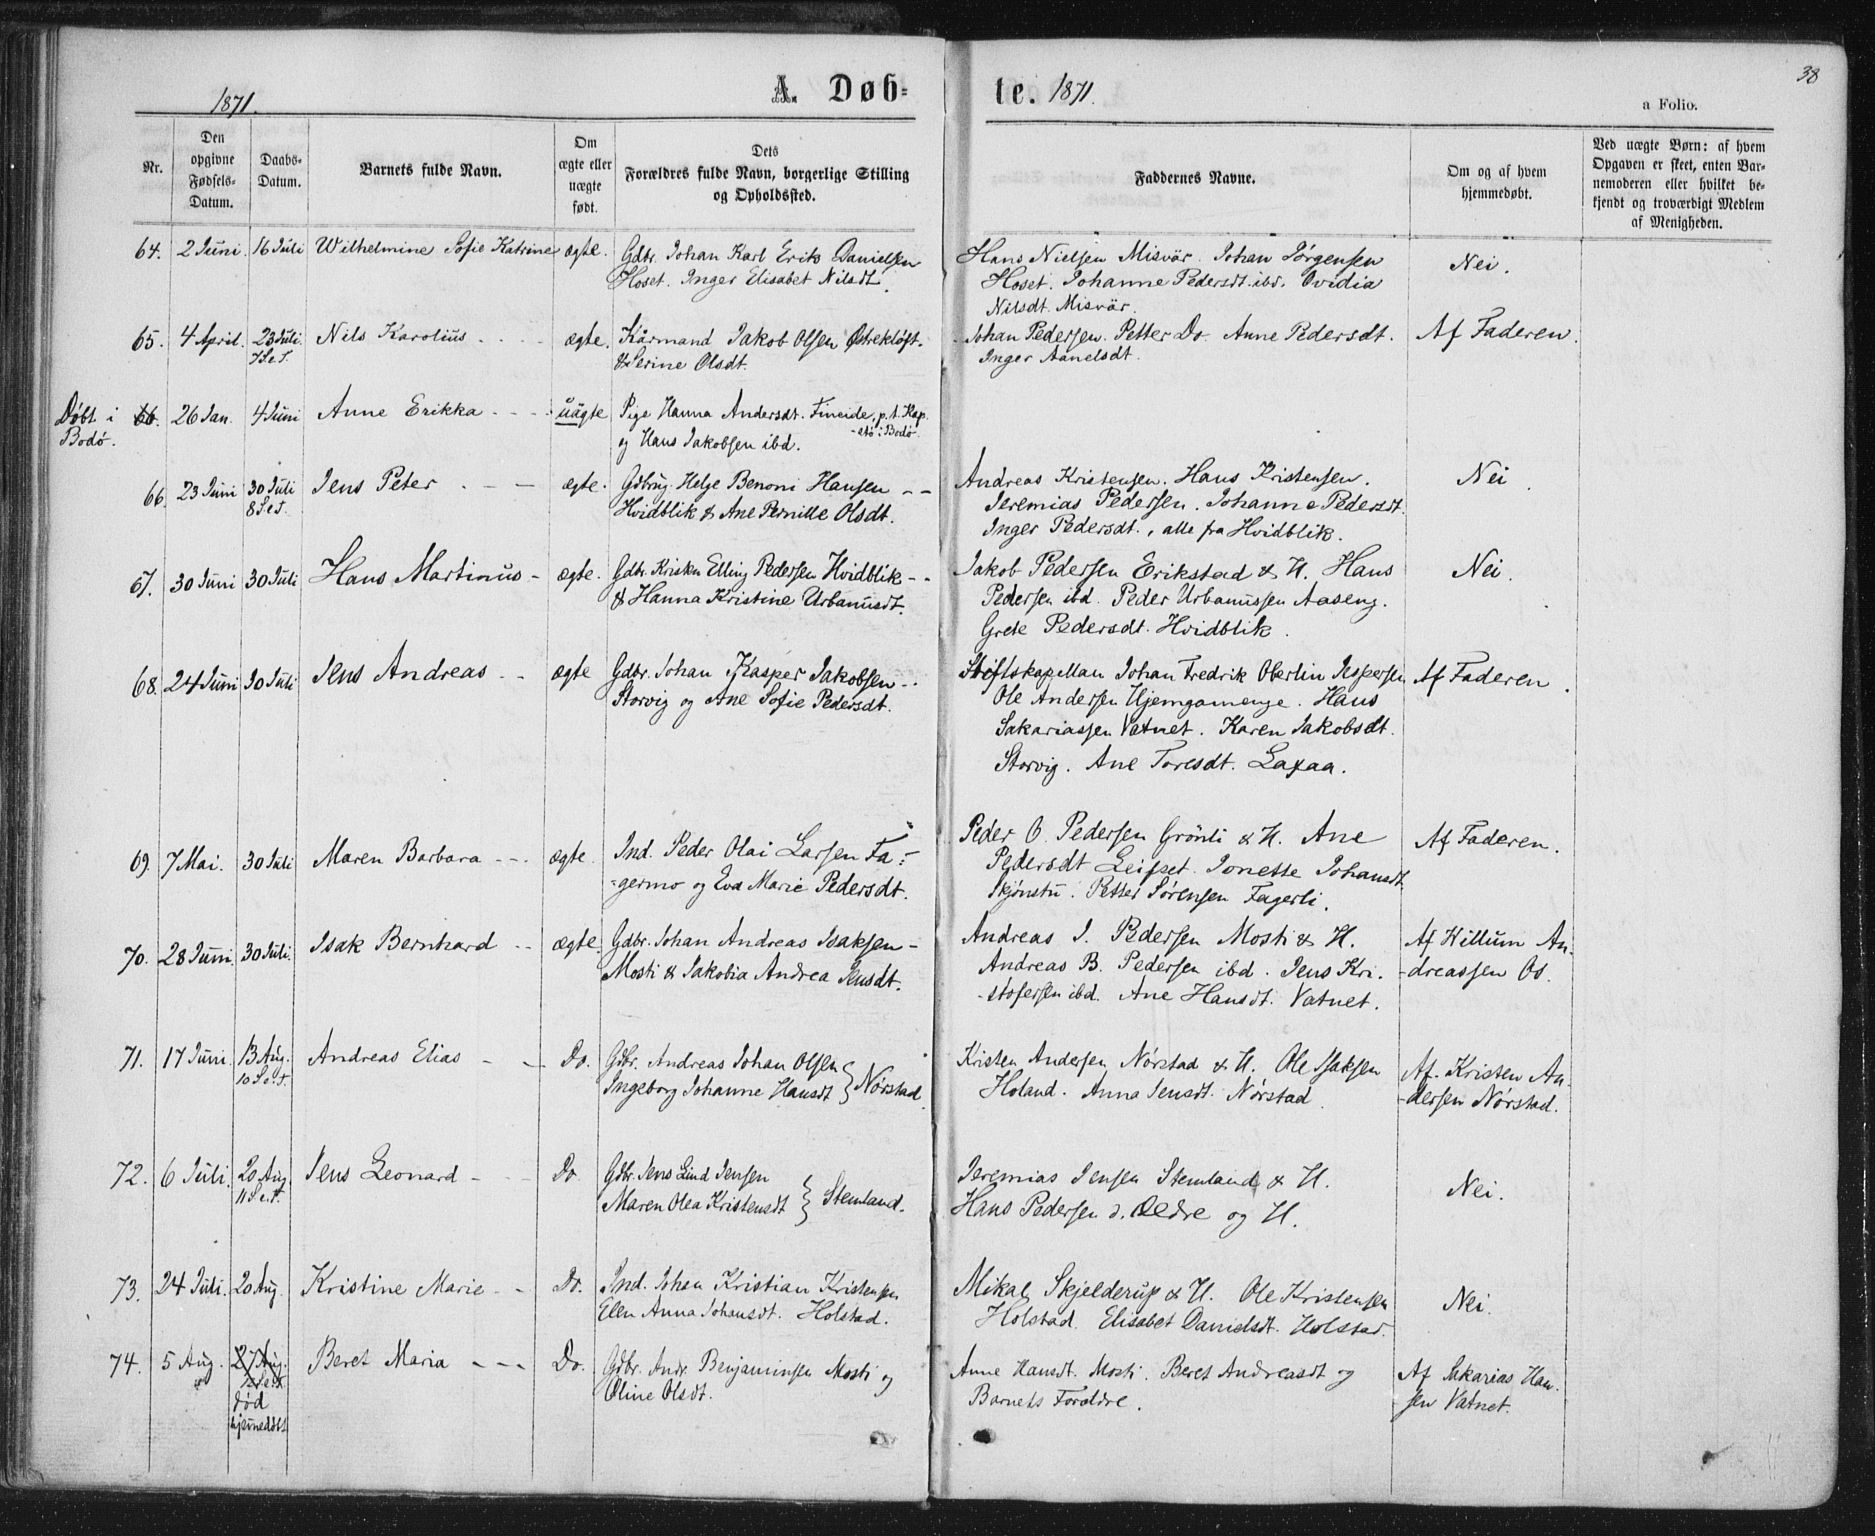 1871. A. Døb= te. 1871. 38
a Folio.
Nr.
Den opgivne Fødsels-Datum.
Daabs-Datum.
Barnets fulde Navn.
Om ægte eller uægte født.
Dets Forældres fulde Navn, borgerlige Stilling og Opholdssted.
Faddernes Navne.
Om og af hvem hjemmedøbt.
Ved uægte Børn: af hvem Opgaven er skeet, enten Barnemoderen eller hvilket bekjendt og troværdigt Medlem af Menigheden.
64. 2 Juni. 16 Juli Wilhelmine Sofie Katrine ægte. Gdbr. Johan Karl Erik Danielsen
Hoset. Inger Elisabet Nilsdt.
Hans Nielsen Misvär. Johan Jørgensen
Hoset. Johanne Pedersdt. ibd. Ovidia
Nilsdt. Misvär.
Nei.
65. 4 April. 23 Juli. 7 S.e.T. Nils Karolius ægte. Kårmand Jakob Olsen Østrekløft.
& Serine Olsdt.
Johan Pedersen. Petter Do. Anne Pedersdt.
Inger Aanelsdt.
Af Faderen.
Døbt i
Bodø.
66. 26 Jan. 4 Juni Anne Erikka uägte Pige Hanna Andersdt. Fineide, p.t. Kap-
og Hans Jakobsen ibd. i Bodø.
66. 23 Juni 30 Juli 8 S.e.T. Jens Peter ægte. Gdbrug. Helge Benoni Hansen
Hvidblik & Ane Pernille Olsdt.
Andreas Kristensen. Hans Kristensen.
Jeremias Pedersen. Johanne Pedersdt.
Inger Pedersdt., alle fra Hvidblik.
Nei.
67. 30 Juni 30 Juli Hans Martinus ægte. Gdbr. Kristen Elling Pedersen Hvidblik
& Hanna Kristine Urbanusdt.
Jakob Pedersen Erikstad & H. Hans
Pedersen ibd. Peder Urbanussen Aaseng.
Grete Pedersdt. Hvidblik.
Nei.
68. 24 Juni 30 Juli Jens Andreas ægte Gdbr. Johan Kasper Jakobsen
Storvig og Ane Sofie Pedersdt.
Stiftskapellan Johan Fredrik Oberlin Jespersen
Ole Andersen Hjemgamenge. Hans
Sakariassen Vatnet. Karen Jakobsdt.
Storvig. Ane Toresdt. Laxaa.
Af Faderen.
69. 7 Mai. 30 Juli Maren Barbara ægte. Ind. Peder Olai Larsen Fa-
germo og Eva Marie Pedersdt.
Peder O. Pedersen Grönli & H. Ane
Pedersdt Leifset. Jonette Johansdt.
Skjönstu. Petter Sørensen Fagerli.
Af Faderen.
70. 28 Juni. 30 Juli. Isak Bernhard ægte Gdbr. Johan Andreas Isaksen
Mosti & Jakobia Andrea Jensdt.
Andreas J. Pedersen Mosti & H.
Andreas B. Pedersen ibd. Jens Kri-
stofersen ibd. Ane Hansdt. Vatnet.
Af Killum An-
dreassen Os.
71. 17 Juni. 13 Aug. 10 S.e.T. Andreas Elias Do. Gdbr. Andreas Johan Olsen
Ingeborg Johanne Hansdt } Nörstad.
Kristen Andersen Nörstad & H. Ole Isaksen
Holand. Anna Jensdt. Nörstad.
Af Kristen An-
dersen Nörstad.
72. 6 Juli. 20 Aug. 11 S.e.T. Jens Leonard Do Gdbr. Jens Lind Jensen
Maren Olea Kristensdt } Stemland.
Jeremias Jensen Stemland & H.
Hans Pedersen d. Ældre og H.
Nei.
73. 24 Juli. 20 Aug. Kristine Marie Do. Ind. Johan Kristian Kristensen
Elen Anna Johansdt. Holstad.
Mikal Skjelderup & H. Ole Kristensen
Holstad. Elisabet Danielsdt. Holstad.
Nei.
74. 5 Aug. 27 Aug. død hjemmedöbt Beret Maria Do. Gdbr. Andr. Benjaminsen Mosti og
Oline Olsdt.
Anne Hansdt. Mosti. Beret Andreasdt og
Barnets Forældre.
Af Sakarias Han-
sen Vatnet.